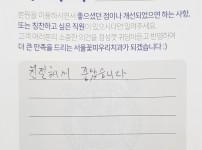 본원을 이용하시면서 좋으셨던 점이나 개선되었으면 하는 사항,
또는 칭찬하고 싶은 직원이 있으시다면 알려주세요.
고객 여러분의 소중한 의견을 점심껏 귀담아듣고 반영하여
더 큰 만족을 드리는 서울꽃마우리치과가 되겠습니다 :)
친절해서 좋았습니다